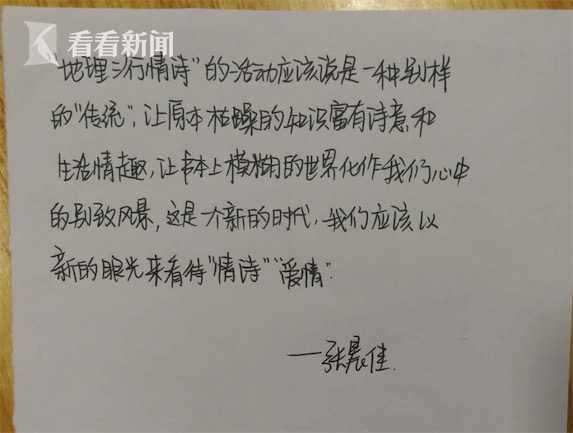 看看新闻
"地理三行情诗"的活动应该说是一种别样
的"传统",让原本枯燥的知识富有诗意和
生活情趣,让书本上模糊的世界化作我们心中
的别致风景,这是一个新的时代,我们应该以
新的眼光来看待"情诗""爱情".
——张晨佳.